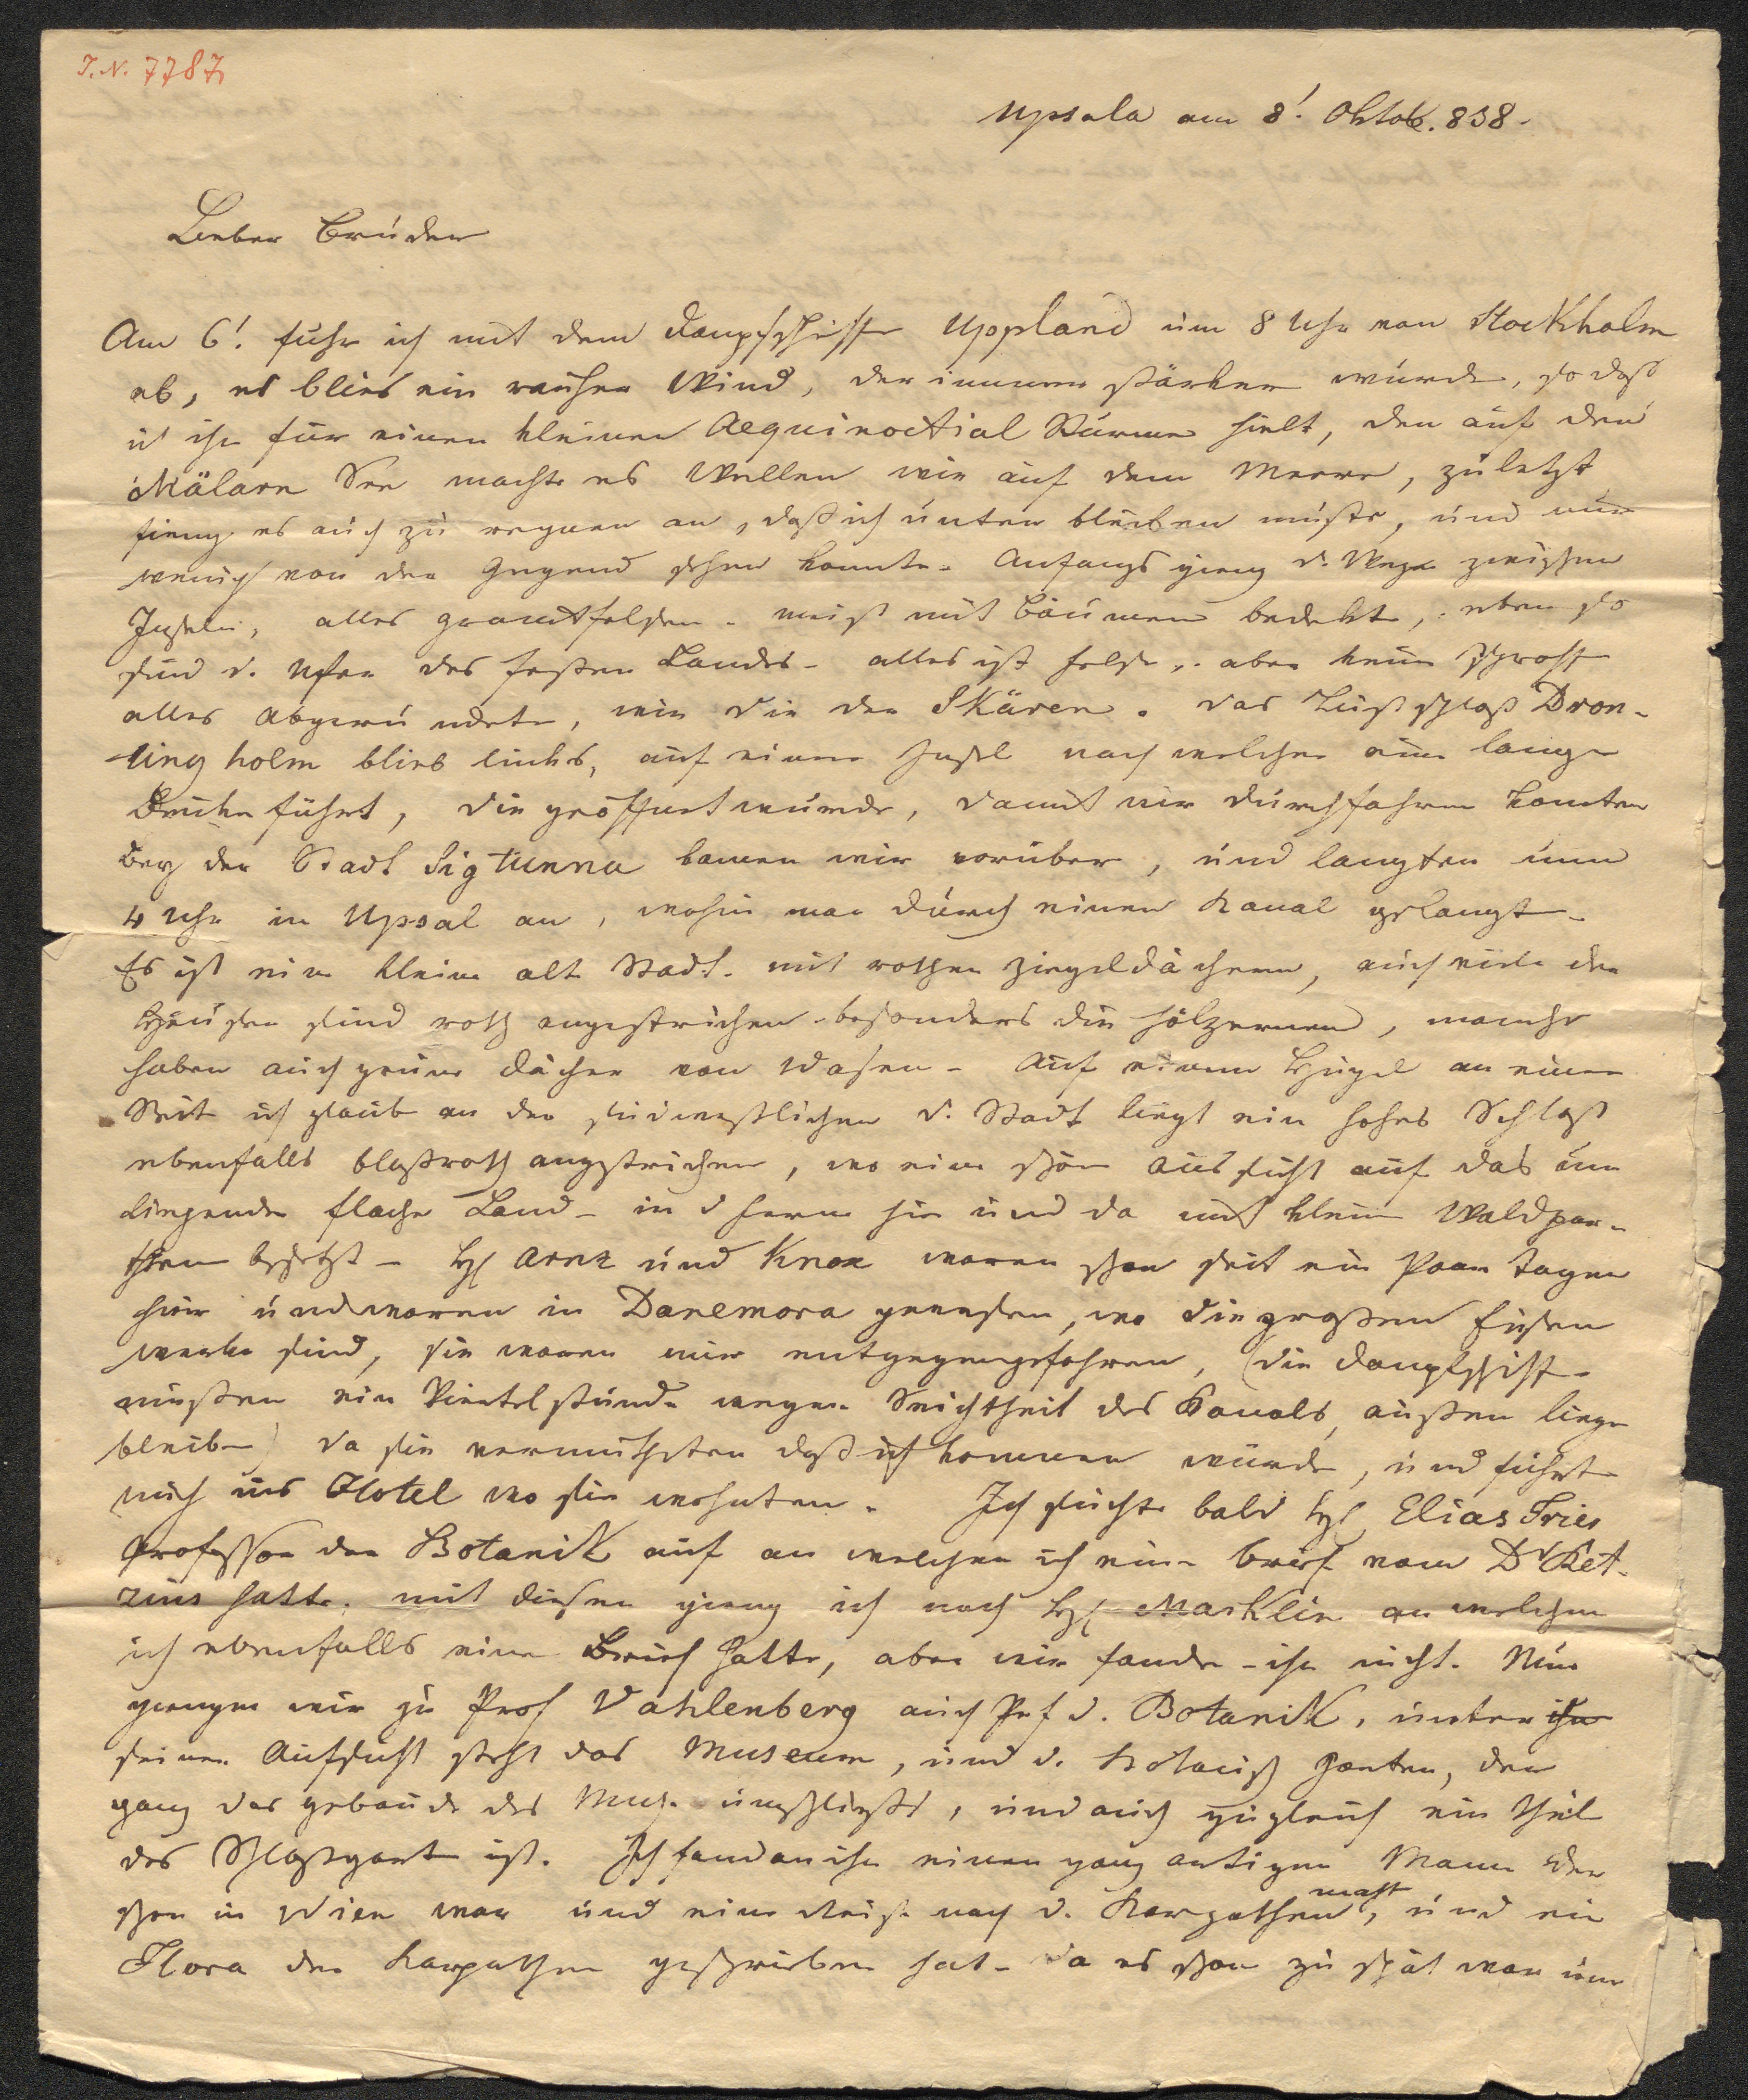 J. N. 7787
Upsala am 8! Oktob. 838.
Lieber Bruder
Am 6! fuhr ich mit dem Dampfschiffe Uppland um 8 Uhr von Stockholm
ab, es blies ein rauher Wind, der immer stärker wurde, so daß
ich ihn für einen kleinen Aequinoctial Sturm hielt, den auf den
Mälarn See machte es Wellen wie auf dem Meere, zuletzt
fieng es auch zu regnen an, daß ich unten bleiben mußte, und nur
wenig von der Gegend sehen konnte. Anfangs gieng d. Weg zwischen
Inseln, alles granitfelsen. meist mit Bäumen bedekt, eben so
sind d. Ufer des festen Landes - alles ist felse, aber keine schroffe
alles abgerundete, wie die der Skären. Das Lustschloß Dron-
ling holm blieb links, auf einer Insel nach welcher eine lange
Brüke führt, die geöffnet wurde, damit wir durchfahren konten
Bey der Stadt Sigtunna kamen wir vorüber, und langten um
4 Uhr in Upsal an, wohin man durch einen Kanal gelangt.
Es ist eine kleine alte Stadt. mit rothen Ziegeldächern, auch viele der
Häuser sind roth angestrichen besonders die hölzernen, manche
haben auch grüne Dächer von Wasen - Auf einem Hügel an einer
Seite ich glaube an der südwestlichen d. Stadt liegt ein hohes Schloß
ebenfalls blaßroth angestrichen, wo eine schöne Aussicht auf das um
liegende flache Land - in d ferne hie und da mit kleine Waldpar-
thien besetzt - H Arnz und Knox waren schon seit ein Paar Tagen
hier und waren in Danemora gewesen, wo die großen Eisen
werke sind, sie waren mir entgegengefahren, (die Dampfschiffe
müßen eine Viertelstunde wegen Seichtheit des Kanals außen liegen
bleiben) da sie vermutheten daß ich kommen würde, und führte
mich ins Hotel wo sie wohnten. Ich suchte bald H Elias Fries
Professor der Botanik auf an welchen ich eine Brief vom Dr Ret-
zius hatte. mit diesem gieng ich nach H Marklin an welchen
ich ebenfalls einen Brief hatte, aber wir fanden ihn nicht. Nun
giengen wir zu Prof Vahlenberg auch Prf d. Botanik, unter ihn
seiner Aufsicht steht das Museum, und d. botanisch Garten, der
ganz das gebäude des Mus. umschließt, und auch zugleich ein Theil
des Schloßgarten ist. Ich fand an ihn einen ganz artigen Mann der
schon in Wien war und eine Reise nach d. Karpathen macht, und eine
Flora der Karpathen geschrieben hat - da es schon zu spät war um